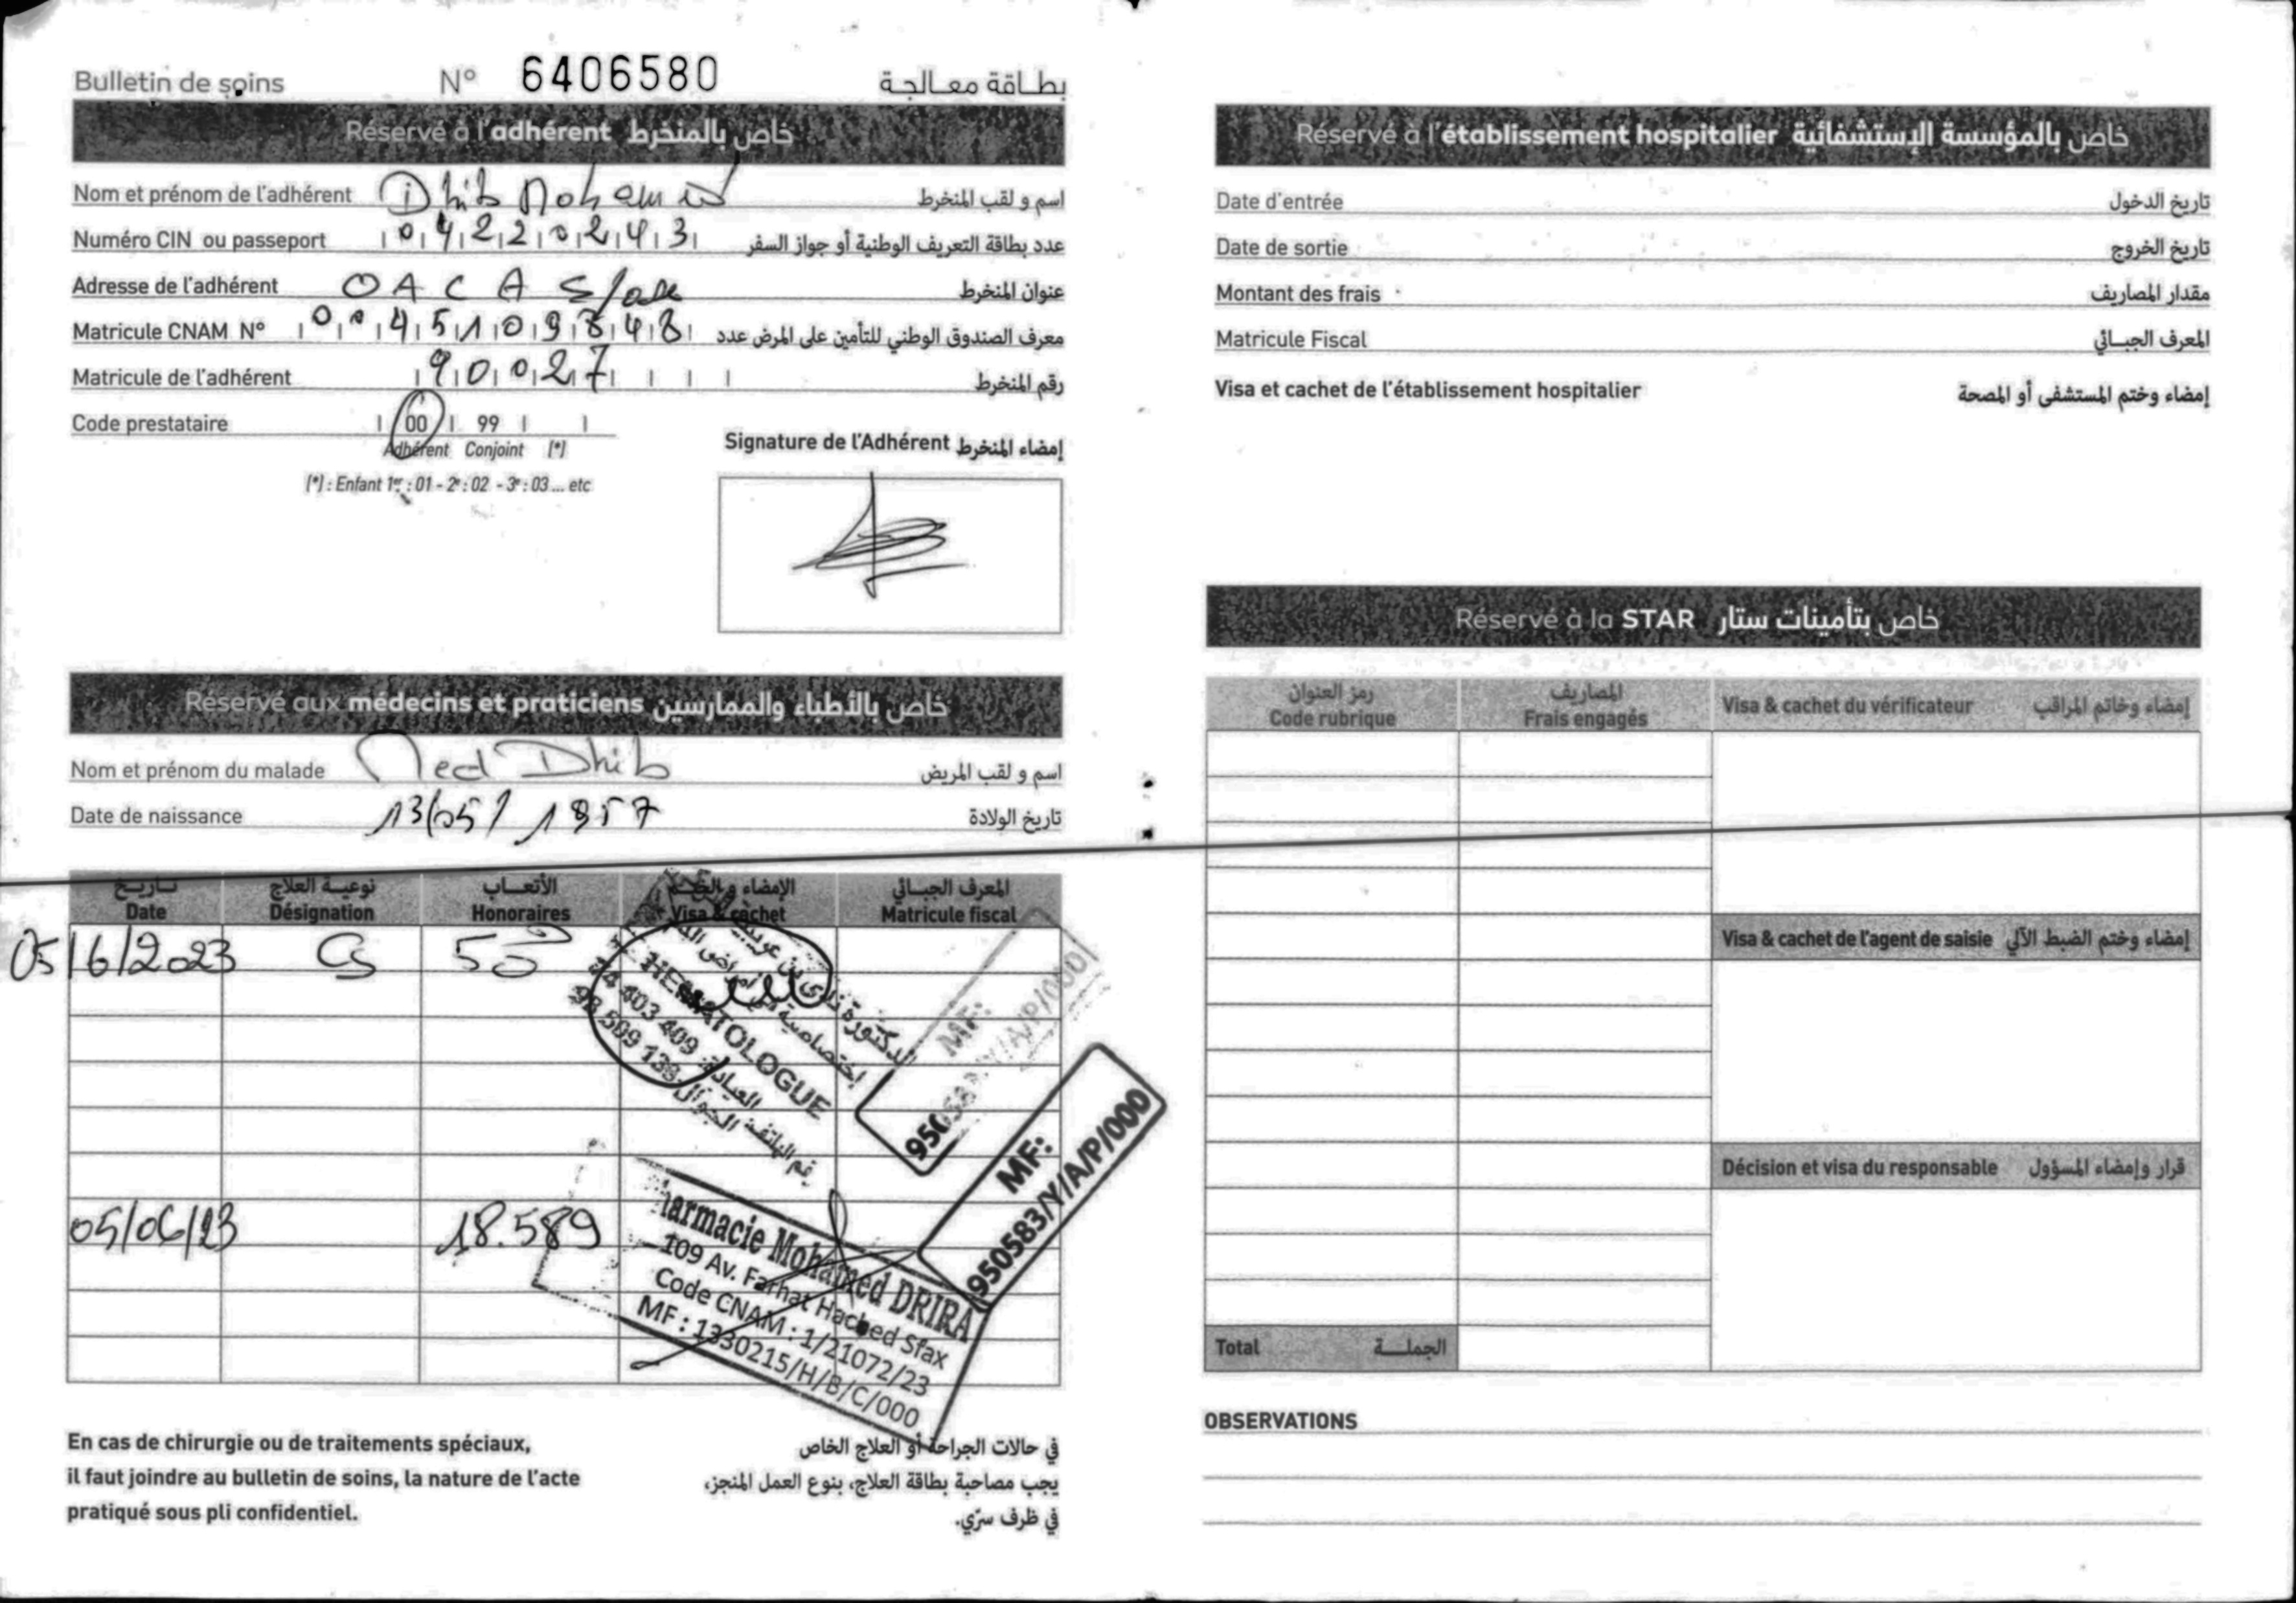 Bulletin de soins N° 6406580 بطاقة معالجة
Réservé à l'adhérent خاص بالمنخرط
Nom et prénom de l'adhérent Dhib Mohamed اسم و لقب المنخرط
Numéro CIN ou passeport 04220243 عدد بطاقة التعريف الوطنية أو جواز السفر
Adresse de l'adhérent OACA Sfax عنوان المنخرط
Matricule CNAM N° 0045109848 معرف الصندوق الوطني للتأمين على المرض عدد
Matricule de l'adhérent 90027 رقم المنخرط
Code prestataire 00 99
Adhérent Conjoint (*)
(*) : Enfant 1er : 01 - 2e : 02 - 3e : 03 ... etc
Signature de l'Adhérent إمضاء المنخرط
Réservé aux médecins et praticiens خاص بالأطباء والممارسين
Nom et prénom du malade Med Dhib اسم و لقب المريض
Date de naissance 13/05/1957 تاريخ الولادة
تاريخ نوعية العلاج الأتعاب الإمضاء و الختم المعرف الجبائي
Date Désignation Honoraires Visa & cachet Matricule fiscal
05/6/2023 CS 50
الدكتورة
HEMATOLOGUE
رقم الهاتف: العيادة: 74 403 409
الجوال: 98 509 138
MF:
MF:
950583/Y/A/P/000
05/06/23 18.589
Pharmacie Mohamed DRIRA
109 Av. Farhat Hached Sfax
Code CNAM : 1/21072/23
MF : 1330215/H/B/C/000
En cas de chirurgie ou de traitements spéciaux,
il faut joindre au bulletin de soins, la nature de l'acte
pratiqué sous pli confidentiel.
في حالات الجراحة أو العلاج الخاص
يجب مصاحبة بطاقة العلاج، بنوع العمل المنجز،
في ظرف سرّي.
Réservé à l'établissement hospitalier خاص بالمؤسسة الإستشفائية
Date d'entrée تاريخ الدخول
Date de sortie تاريخ الخروج
Montant des frais مقدار المصاريف
Matricule Fiscal المعرف الجبائي
Visa et cachet de l'établissement hospitalier إمضاء وختم المستشفى أو المصحة
Réservé à la STAR خاص بتأمينات ستار
رمز العنوان المصاريف
Code rubrique Frais engagés Visa & cachet du vérificateur إمضاء وخاتم المراقب
Visa & cachet de l'agent de saisie إمضاء وختم الضبط الآلي
Décision et visa du responsable قرار وإمضاء المسؤول
Total الجملة
OBSERVATIONS